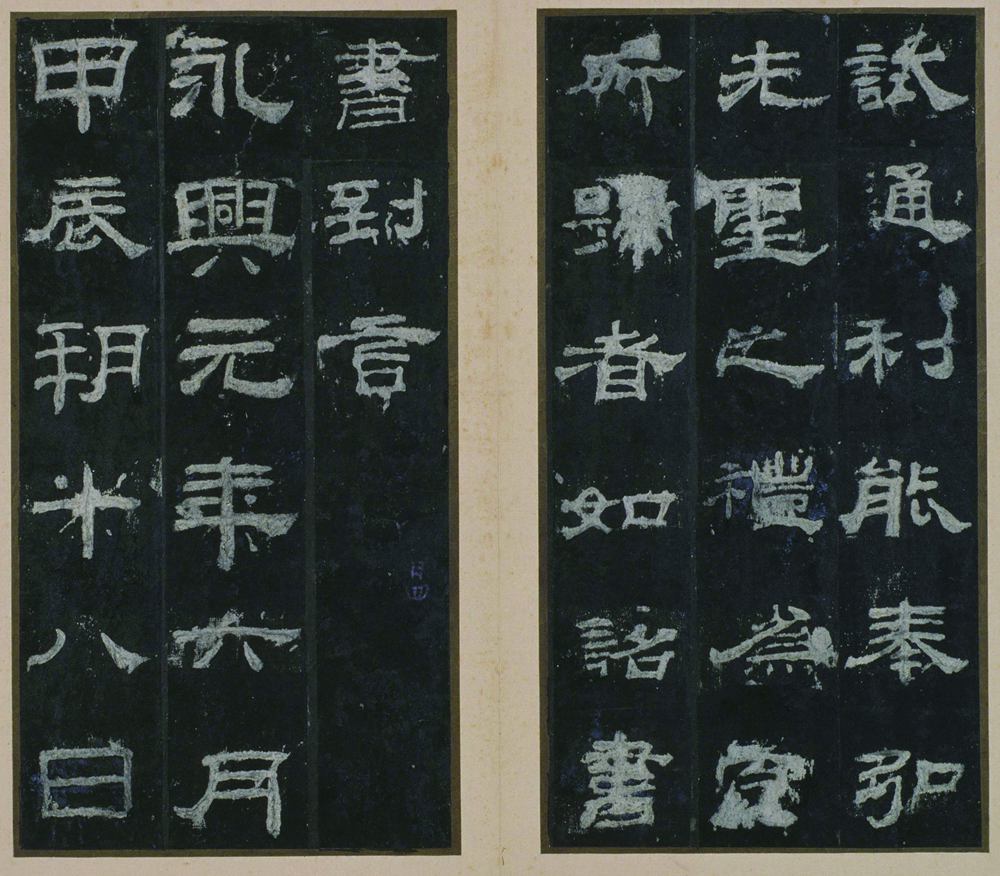 試通利能奉弘
先聖之禮為宗
所歸者如詔書
書到言
永興元年六月
甲辰朔十八日